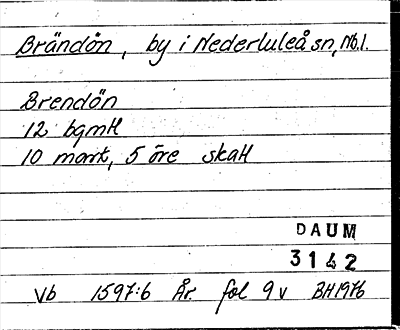 Brändön, by i Nederluleå sn, Nb.l.
Brendön
12 bgmtl
10 mark, 5 öre skatt
DAUM
3142
Vb 1597:6 År fol 9v BH1976